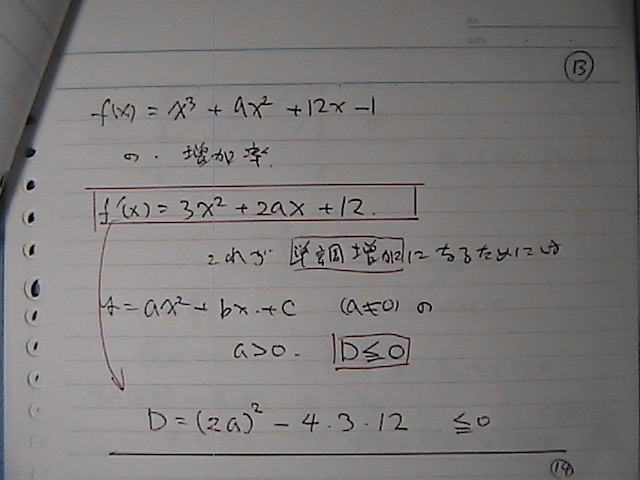 ⑬
f(x) = x³ + ax² + 12x - 1
の. 増加率.
f'(x) = 3x² + 2ax + 12.
これが 単調増加になるためには
= ax² + bx + c (a≠0) の
a>0. D≦0
D = (2a)² - 4・3・12 ≦0
⑭